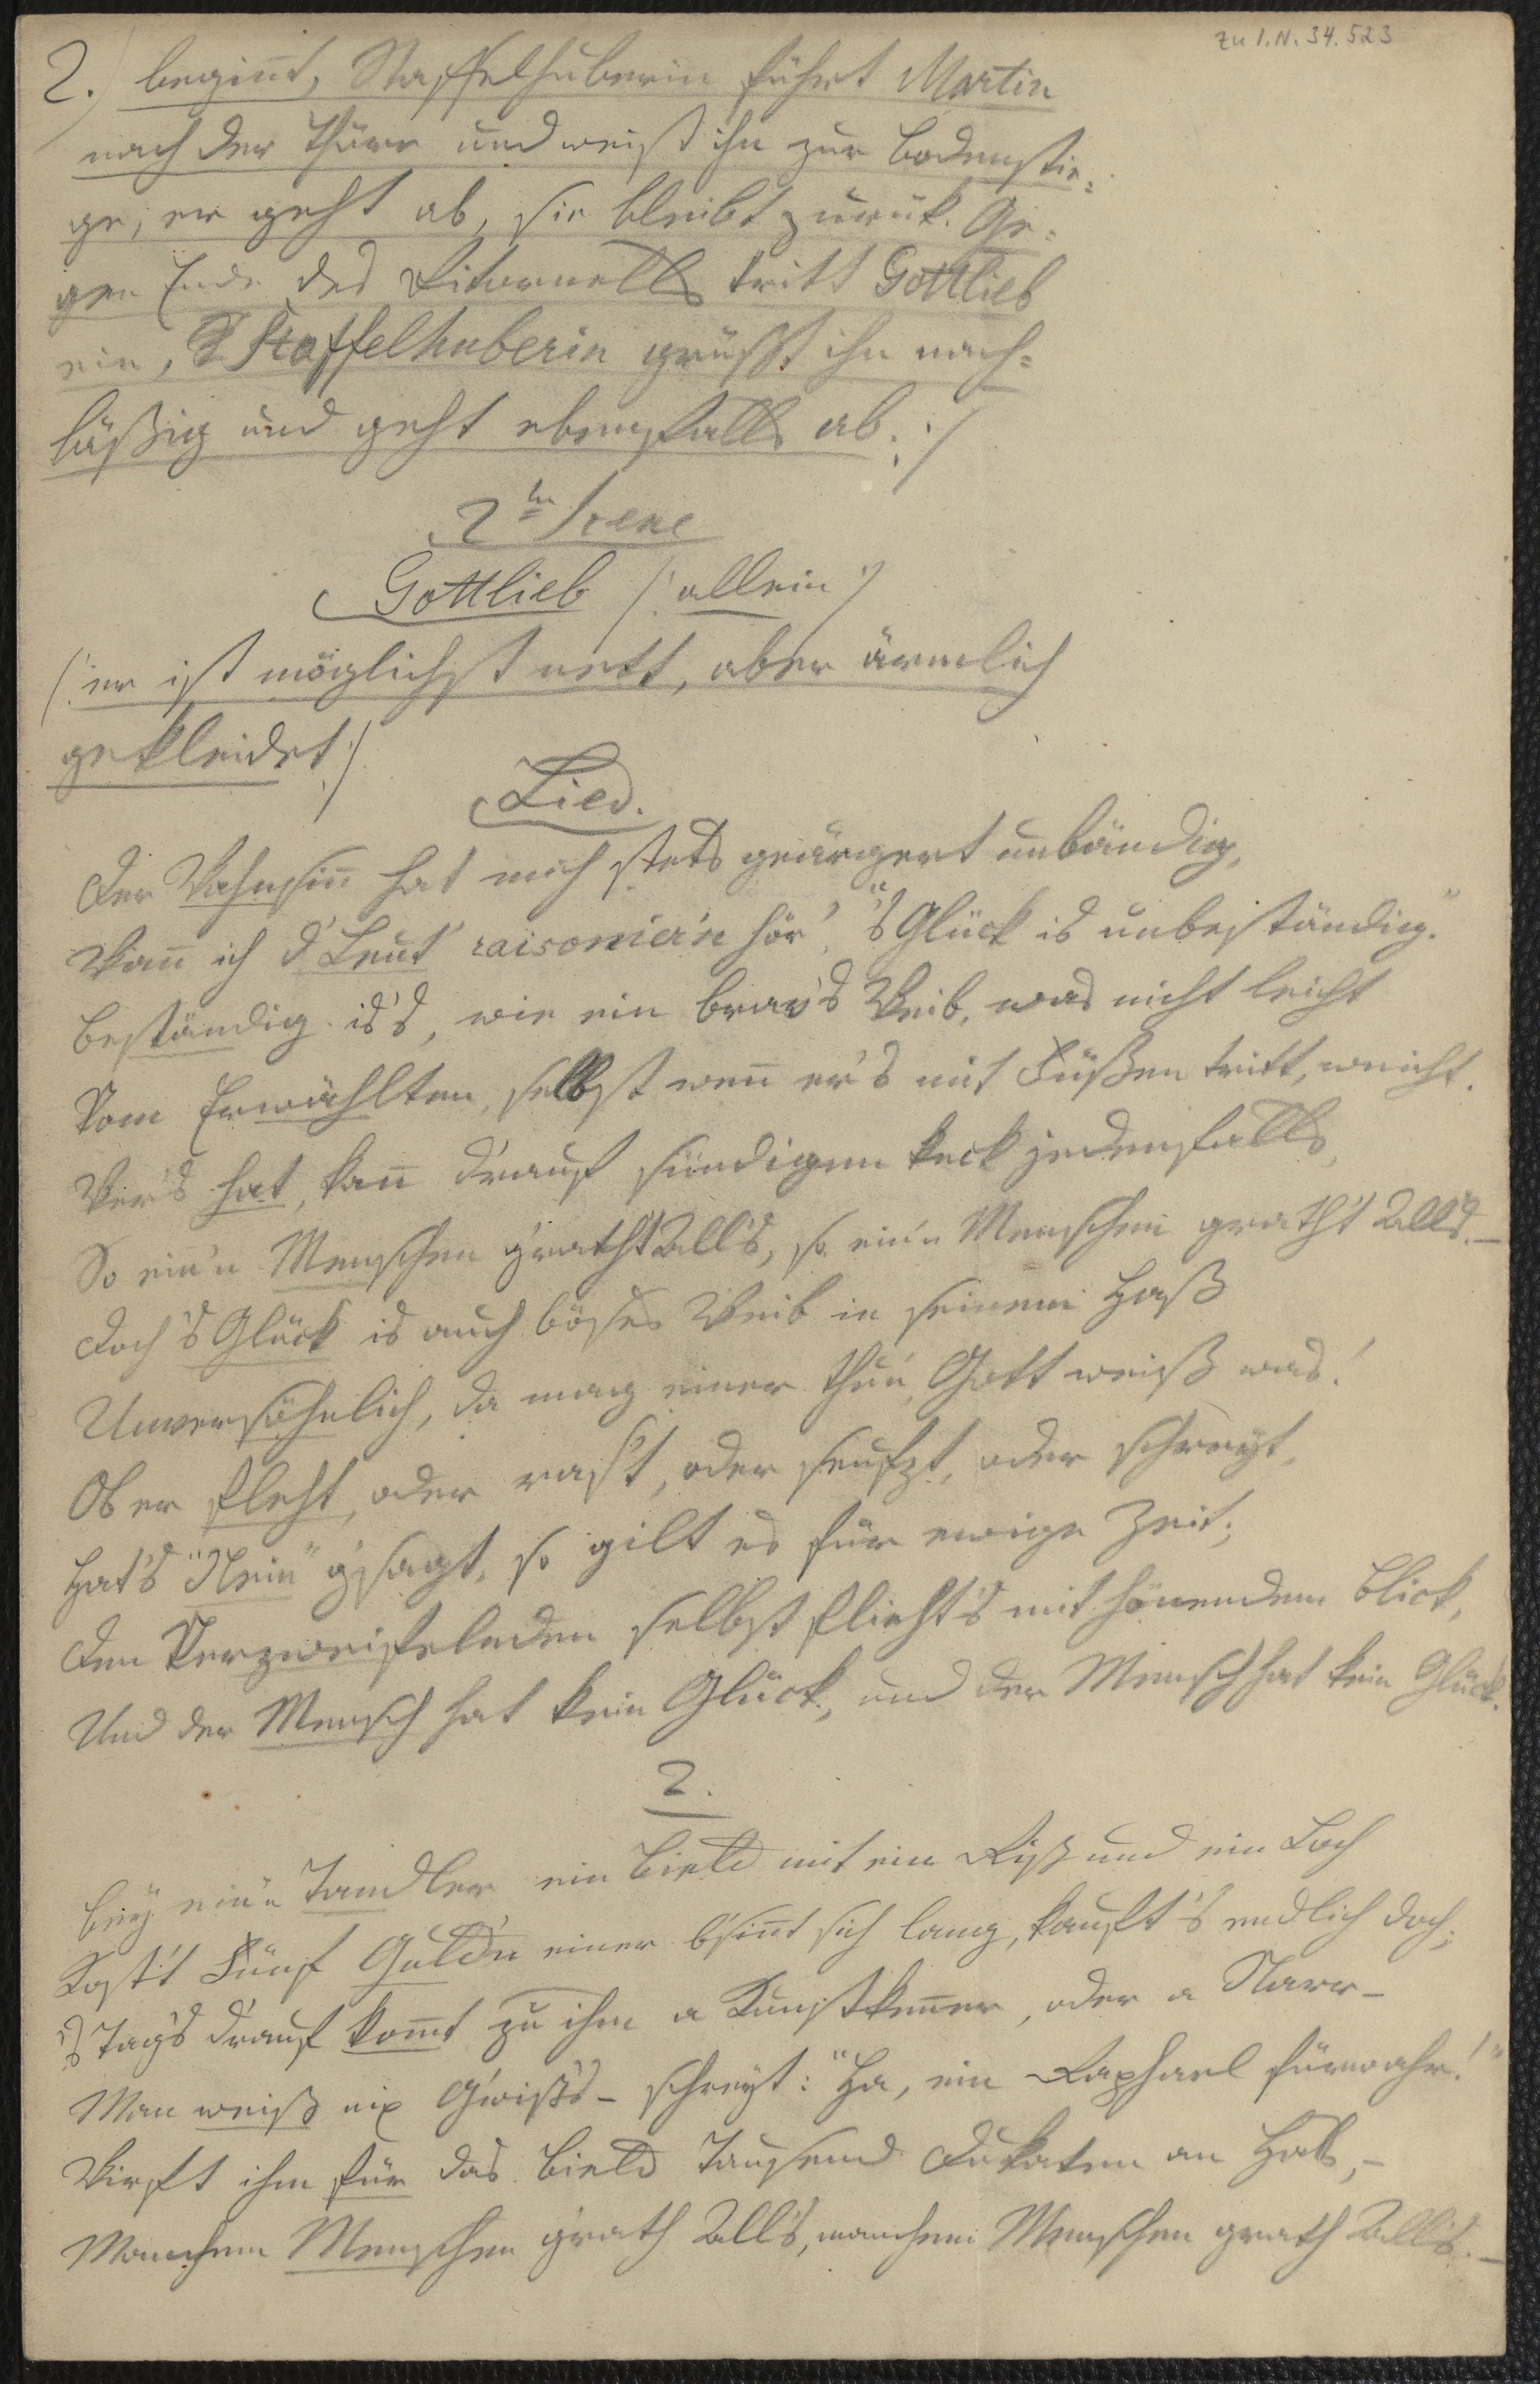 zu I.N. 34.523
2.) beginnt, Staffelhuberin führt Martin
nach der Thüre und weist ihn zur Bodenstie=
ge, er geht ab, sie bleibt zurük. Ge=
gen Ende des Ritornells tritt Gottlieb
ein, Staffelhuberin grüßt ihn nach=
läßig und geht ebenfalls ab. :/
2te Scene
Gottlieb /: allein :/
/: er ist möglichst nett, aber ärmlich
gekleidet :/
Lied.
Der Wahnsinn hat mich stets geärgert unbändig,
Wann ich d' Leut' raisonier'n hör', "'s Glück is unbeständig."
Beständig is's, wie ein brav's Weib, was nicht leicht
Vom Erwählten, selbst wenn er's mit Füßen tritt, weicht.
Wer's hat, kann d'rauf sündigen keck jedenfalls,
So ein'n Menschen g'rath't All's, so ein'n Menschen grath't All's. –
Doch 's Glück is auch böses Weib in seinem Haß
Unversöhnlich, da mag einer thun, Gott weiß was!
Ob er fleht, oder ras't, oder seufzt, oder schreyt,
Hat's "Nein" g'sagt, so gilt es für ewige Zeit;
Den Verzweifelnden selbst flieht's mit hönendem Blick,
Und der Mensch hat kein Glück, und der Mensch hat kein Glück.
2.
Bey ein'n Tandler ein Bield mit ein Riß und ein Loch
Kost't Fünf Guld'n einer b'sinnt sich lang, kauft's endlich doch;
's Tag's d'rauf kommt zu ihm a Kunstkenner, oder a Narr –
Man weiß nix G'wiß's – schreyt: "Ha, ein Raphael fürwahr!"
Wirft ihm für das Bield Tausend Dukaten an Hals, –
Manchem Menschen g'rath All's, manchem Menschen grath All's. –